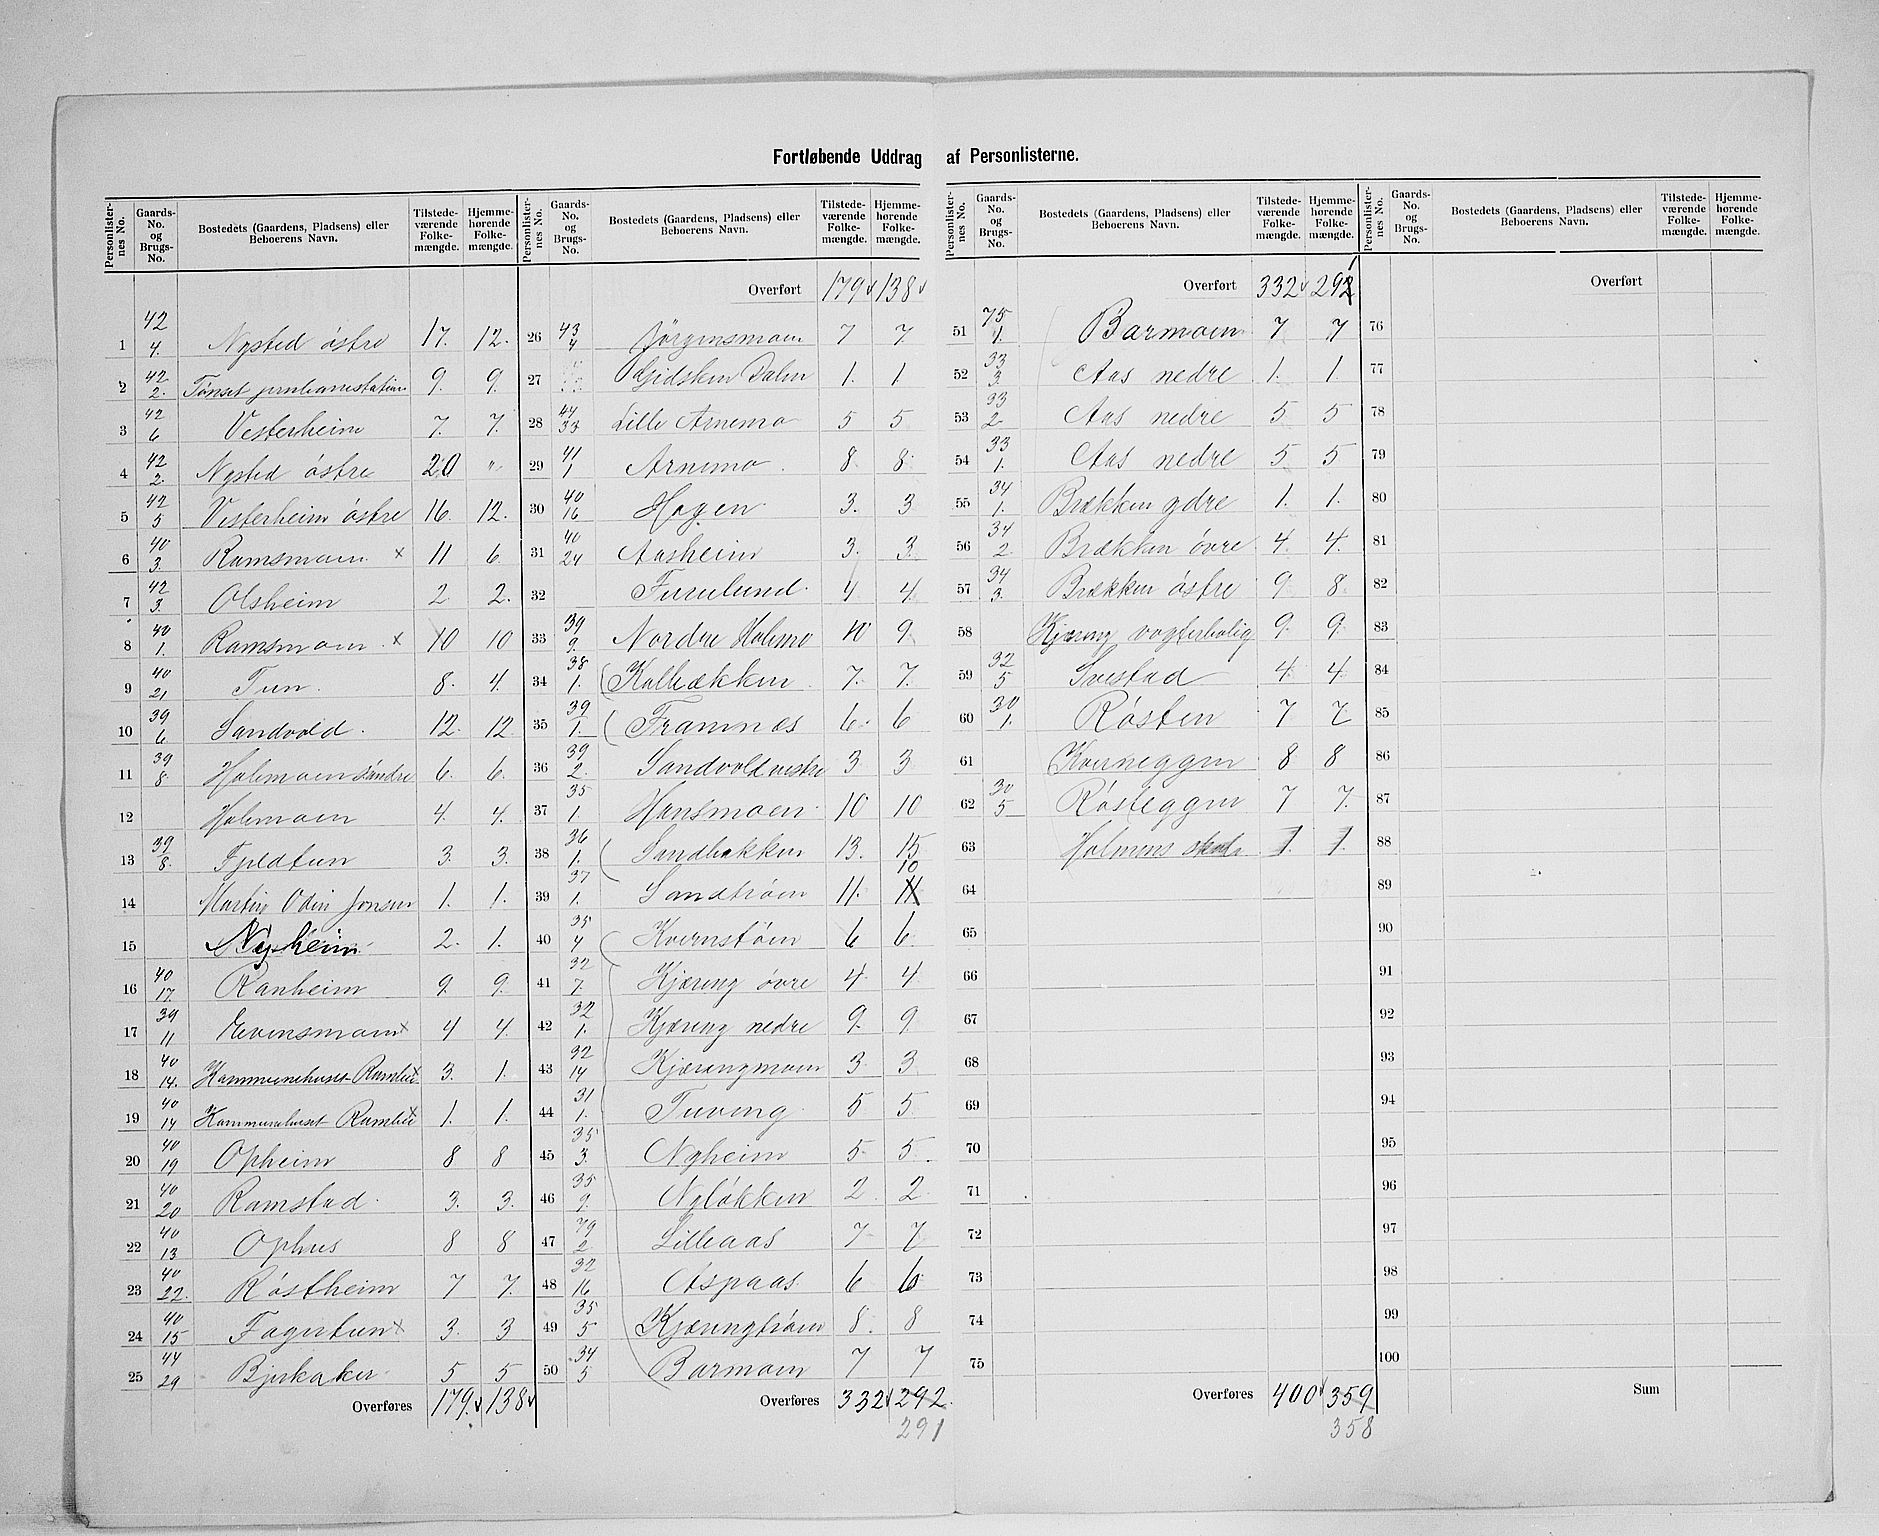 Fortløbende Uddrag af Personlisterne.
Personlister-nes No. | Gaards-No. og Brugs-No. | Bostedets (Gaardens, Pladsens) eller Beboerens Navn. | Tilstede-værende Folke-mængde. | Hjemme-hørende Folke-mængde.
1 | 42/4. | Nysted östre | 17. | 12.
2 | 42/2. | Tønset jernbanestation | 9. | 9.
3 | 42/6 | Vesterheim | 7. | 7.
4 | 42/2. | Nysted östre | 20 | "
5 | 42/5 | Vesterheim östre | 16. | 12.
6 | 40/3. | Ramsmoen x | 11 | 6.
7 | 42/3. | Olsheim | 2 | 2.
8 | 40/1. | Ramsmoen x | 10 | 10
9 | 40/21 | Tun. | 8. | 4.
10 | 39/6 | Sandvold. | 12. | 12.
11 | 39/8. | Holmmoen söndre | 6. | 6.
12 | Holmmoen | 4. | 4.
13 | 39/8. | Fjeldtun | 3. | 3.
14 | Martin Odin Jensen | 1. | 1.
15 | Nyheim | 2. | 1.
16 | 40/17. | Ranheim | 9. | 9.
17 | 39/11 | Evensmoen x | 4 | 4.
18 | 40/14. | Kommunehuset Ramlien x | 3. | 1.
19 | 40/14 | Kommunehuset Ramlien x | 1. | 1.
20 | 40/19 | Opheim | 8 | 8
21 | 40/20 | Ramstad. | 3. | 3.
22 | 40/13 | Ophus | 8 | 8
23 | 40/22. | Röstheim | 7 | 7.
24 | 40/15 | Fagertun x | 3. | 3
25 | 44/29 | Bjerkaker | 5 | 5
Overføres | 179. | 138
Personlister-nes No. | Gaards-No. og Brugs-No. | Bostedets (Gaardens, Pladsens) eller Beboerens Navn. | Tilstede-værende Folke-mængde. | Hjemme-hørende Folke-mængde.
Overført | 179 | 138
26 | 43/4 | Jörgensmoen | 7 | 7.
27 | Gidsken Dalen | 1. | 1.
28 | 44/33 | Lille Arnemo | 5 | 5
29 | 41/1 | Arnemo. | 8 | 8.
30 | 40/16 | Hagen | 3. | 3
31 | 40/24 | Aasheim | 3. | 3.
32 | Furulund. | 4 | 4.
33 | 39/9. | Nordre Holmmo | 10 | 9.
34 | 38/1. | Kolbækken | 7. | 7.
35 | 39/1. | Framnes | 6. | 6
36 | 39/2. | Sandvold vestre | 3 | 3
37 | 35/1. | Hansmoen. | 10 | 10
38 | 36/1. | Sandbakken | 13. | 15
39 | 37/1. | Sandtröen | 11. | 11 10
40 | 35/4 | Kvernstöen | 6 | 6.
41 | 32/7. | Kjæreng övre | 4 | 4
42 | 32/1. | Kjæreng nedre | 9. | 9
43 | 32/14 | Kjærengmoen | 3. | 3
44 | 31/1. | Tuveng. | 5 | 5.
45 | 35/3. | Nyheim | 5 | 5.
46 | 35/9. | Nylökken | 2 | 2
47 | 79/2 | Lilleaas | 7 | 7
48 | 32/16 | Aspaas. | 6 | 6
49 | 35/5 | Kjærengtröen | 8. | 8
50 | 34/5 | Barmoen | 7 | 7
Overføres | 332 | 292.
291
Personlister-nes No. | Gaards-No. og Brugs-No. | Bostedets (Gaardens, Pladsens) eller Beboerens Navn. | Tilstede-værende Folke-mængde. | Hjemme-hørende Folke-mængde.
Overført | 332 | 292 1
51 | 75/1. | Barmoen | 7 | 7
52 | 33/3. | Aas nedre | 1. | 1
53 | 33/2 | Aas nedre | 5 | 5
54 | 33/1. | Aas nedre | 5 | 5
55 | 34/1. | Brækken ydre | 1. | 1.
56 | 34/2. | Brækken övre | 4. | 4.
57 | 34/3. | Brækken östre | 9 | 8
58 | Kjæreng vogterbolig | 9. | 9.
59 | 32/5 | Svestad | 4 | 4
60 | 30/1. | Rösten | 7 | 7
61 | Kverneggen | 8 | 8
62 | 30/5 | Rösteggen | 7 | 7.
63 | Holmens skole | 1. | 1.
64
65
66
67
68
69
70
71
72
73
74
75
Overføres | 400 | 359
358
Personlister-nes No. | Gaards-No. og Brugs-No. | Bostedets (Gaardens, Pladsens) eller Beboerens Navn. | Tilstede-værende Folke-mængde. | Hjemme-hørende Folke-mængde.
Overført
76
77
78
79
80
81
82
83
84
85
86
87
88
89
90
91
92
93
94
95
96
97
98
99
100
Sum